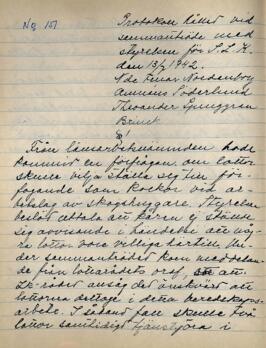 No 157
Protokoll hållet vid
sammanträde med
styrelsen för S.L.K.
den 13/2 1942.
Nde Fruar Nordensvan
Amnéus Söderlund
Theander Ljunggren
Brinck
§1
Från länsarbetsnämnden hade
kommit en förfrågan om lottor
skulle vilja ställa sig till för-
fogande som kockor vid ar-
betslag av skogshuggare. Styrelsen
beslöt uttala att kåren ej ställde
sig avvisande i händelse att någ-
ra lottor vore villiga härtill. Un-
der sammanträdet kom meddelan-
de från lottarådets ordf. att
Lk-rådet ansåg det önskvärt att
lottorna deltoge i detta beredskaps-
arbete. I sådant fall skulle två
lottor samtidigt tjänstgöra i